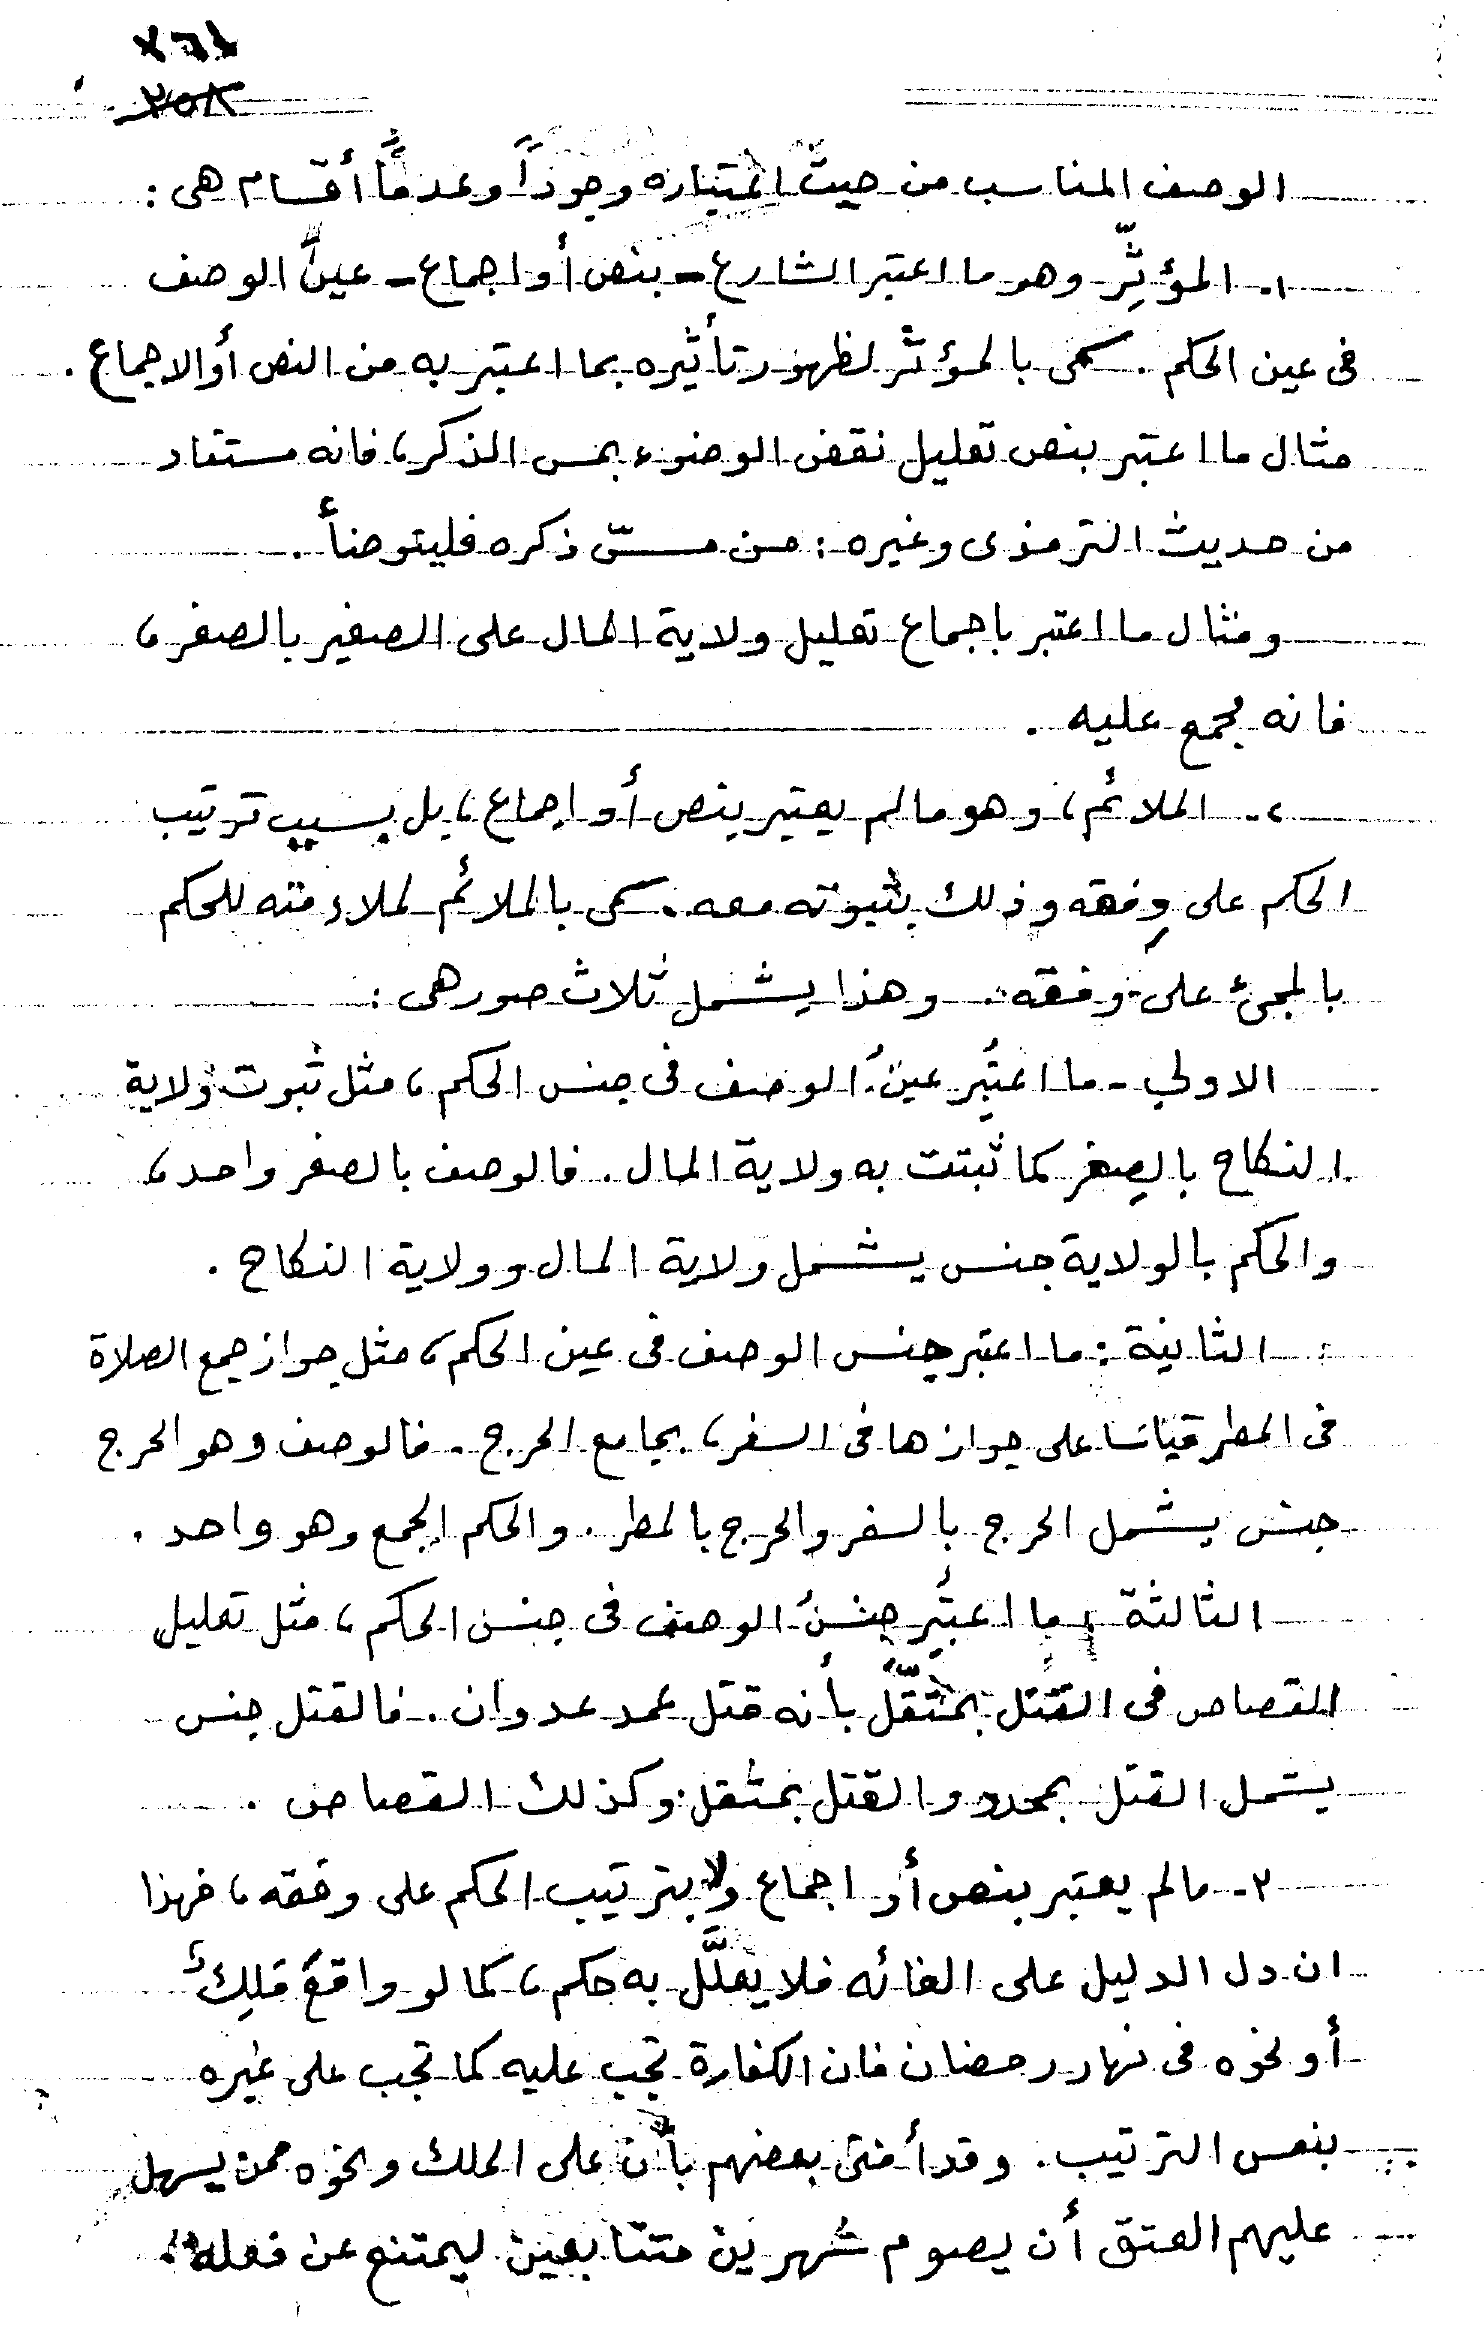 ٢٥٨
الوصف المناسب من حيث اعتباره وجوداً وعدماً أقسام هى :
١- المؤثِّر وهو ما اعتبر الشارع - بنص أو اجماع - عينُ الوصف
فى عين الحكم . سمى بالمؤثر لظهور تأثيره بما اعتبر به من النص أو الاجماع .
مثال ما اعتبر بنص تعليل نقض الوضوء بمس الذكر ، فانه مستفاد
من حديث الترمذى وغيره : من مسّ ذكره فليتوضأ .
ومثال ما اعتبر باجماع تعليل ولاية المال على الصغير بالصغر ،
فانه مجمع عليه .
٢- الملائم ، وهو مالم يعتبر بنص أو إجماع ، بل بسبب ترتيب
الحكم على وِفقه وذلك بثبوته معه . سمى بالملائم لملاءمته للحكم
بالمجئ على وفقه . وهذا يشمل ثلاث صور هى :
الاولى - ما اعتُبِر عينُ الوصف فى جنس الحكم ، مثل ثبوت ولاية
النكاح بالصِغر كما ثبتت به ولاية المال . فالوصف بالصغر واحد ،
والحكم بالولاية جنس يشمل ولاية المال وولاية النكاح .
الثانية : ما اعتبر جنس الوصف فى عين الحكم ، مثل جواز جمع الصلاة
فى المطر قياسا على جوازها فى السفر ، بجامع الحرج . فالوصف وهو الحرج
جنس يشمل الحرج بالسفر والحرج بالمطر . والحكم الجمع وهو واحد .
الثالثة ، ما اعتُبِر جنسُ الوصف فى جنس الحكم ، مثل تعليل
القصاص فى القتل بمثقّل بأنه قتل عمد عدوان . فالقتل جنس
يشمل القتل بمحدد والقتل بمثقل . وكذلك القصاص .
٣- مالم يعتبر بنص أو اجماع ولا بترتيب الحكم على وفقه ، فهذا
ان دل الدليل على الغائه فلا يعلَّل به حكم ، كما لو واقع مَلِك
أو نحوه فى نهار رمضان فان الكفارة تجب عليه كما تجب على غيره
بنفس الترتيب . وقد أفتى بعضهم بأن على الملك ونحوه ممن يسهل
عليهم العتق أن يصوم شهرين متتابعين ليمتنع عن فعله .